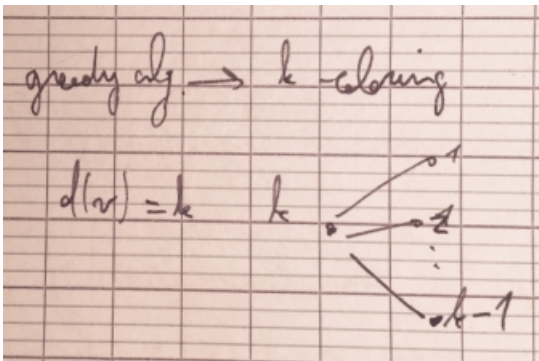 greedy alg. → k-coloring
1
d(v) = k k 2
⋮
k-1